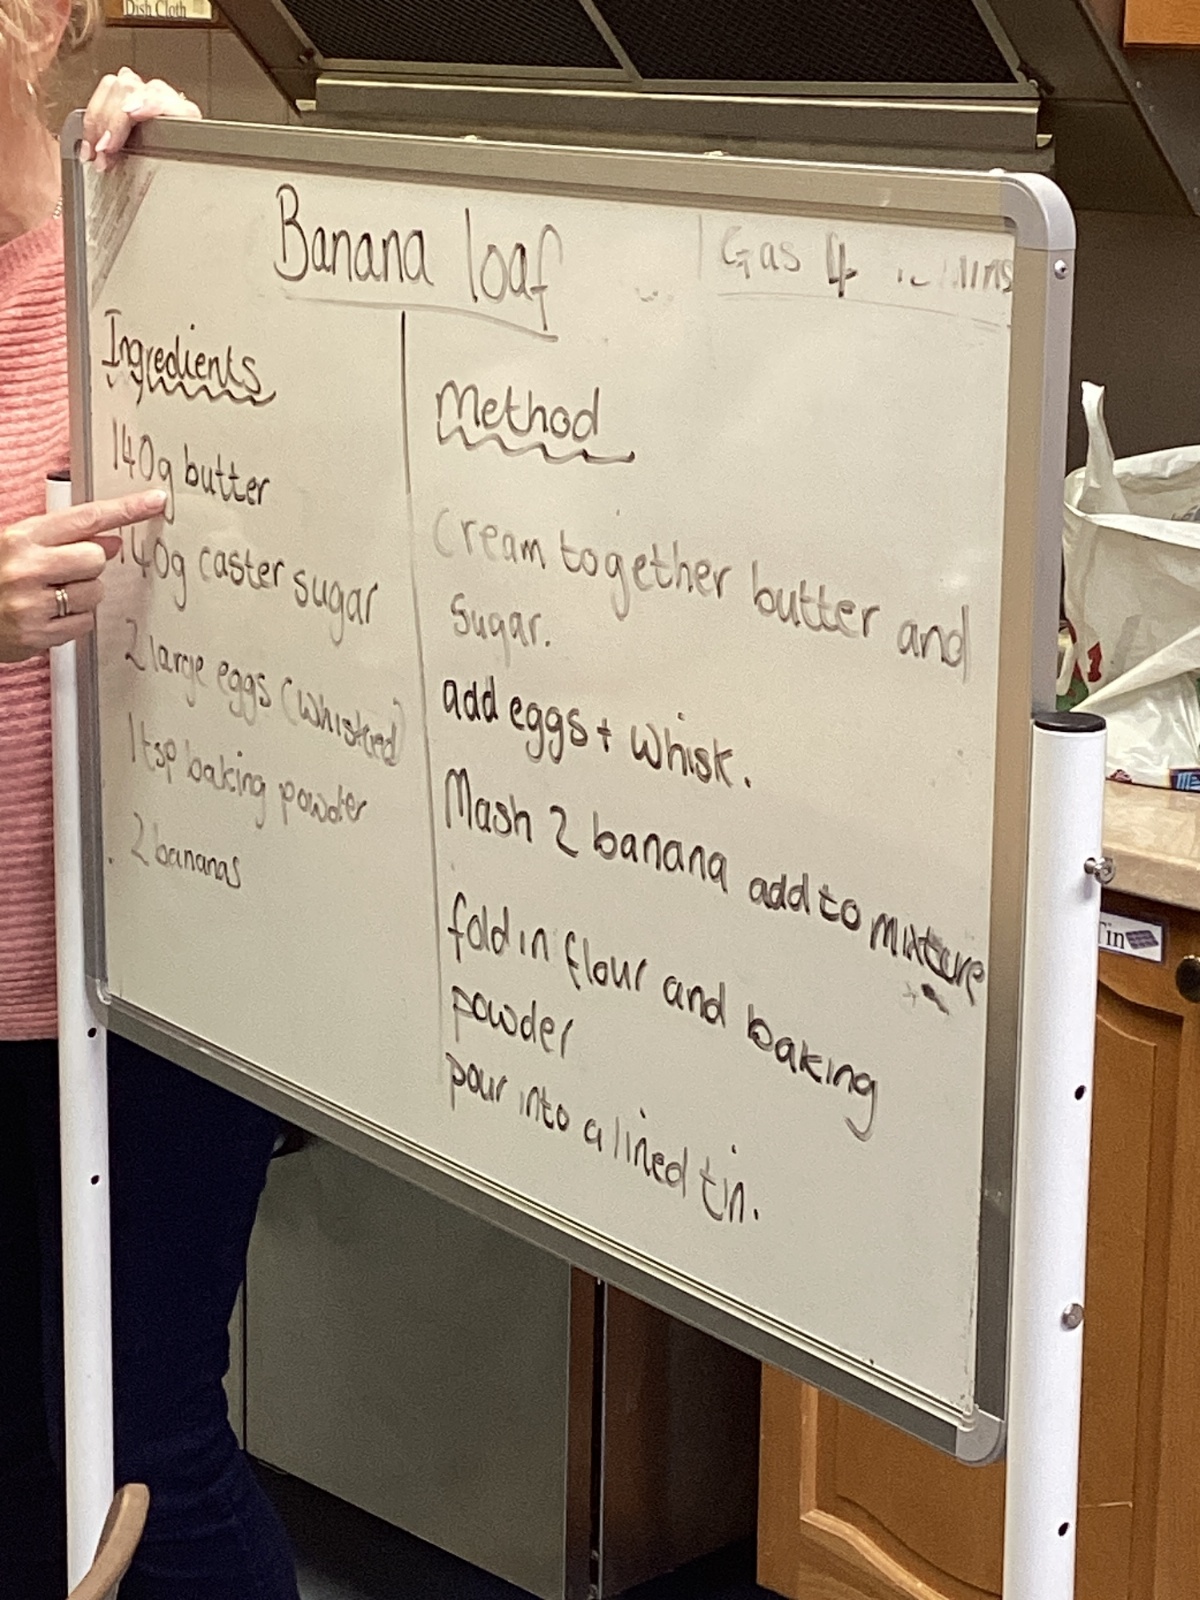 Dish Cloth
Banana loaf
Gas 4
Ingredients
140g butter
140g caster sugar
2 large eggs (whisked)
1 tsp baking powder
2 bananas
Method
Cream together butter and
sugar.
add eggs + whisk.
Mash 2 banana add to mixture
fold in flour and baking
powder
pour into a lined tin.
Tin